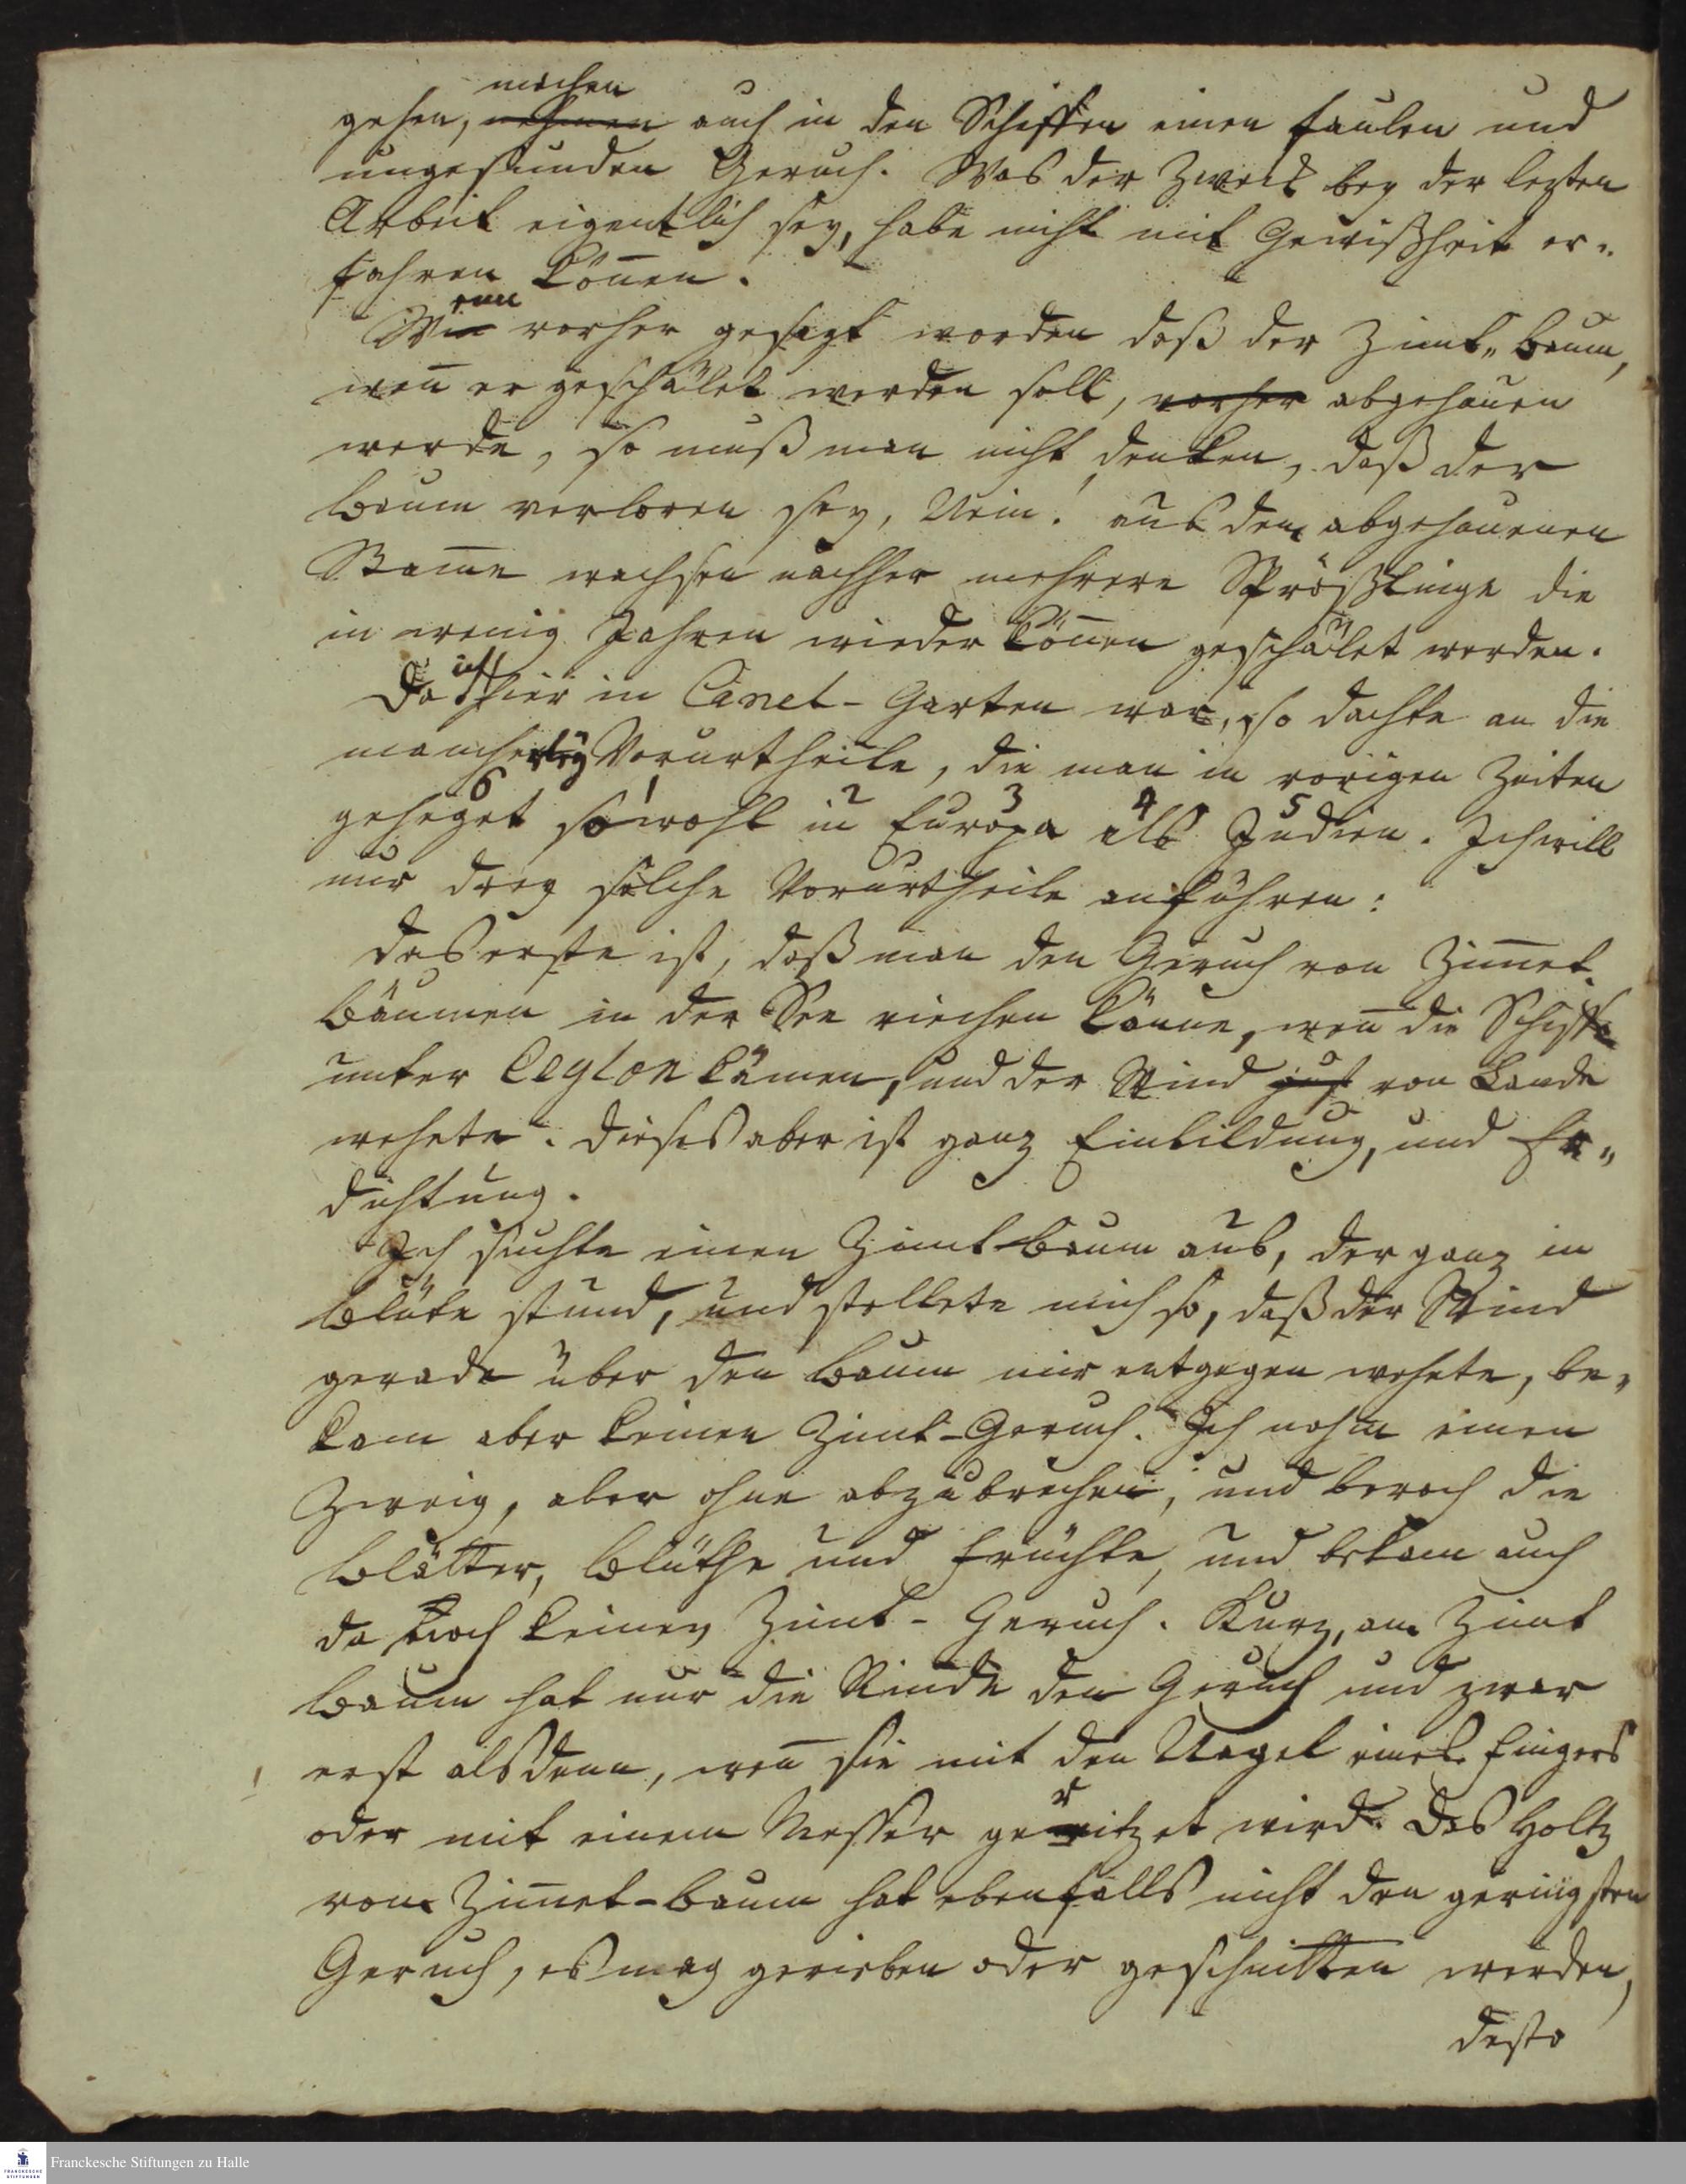 machen
gehen, nehmen auch in den Schiffen einen faulen und
ungesunden Geruch. Was der Zweck bey der lezten
Arbeit eigentlich sey, habe nicht mit Gewißheit er„
fahren kön̄en.
enn
Wie vorher gesagt worden daß der Zimt„Baum,
wen̄ er geschälet werden soll, vorher abgehauen
werde, so muß man nicht denken, daß der
Baum verloren sey, Nein! aus dem abgehauenen
Stam̄e wachsen nachher mehrere Sprößlinge die
in wenig Jahren wieder kön̄en geschälet werden.
ich
Da hier im Canel-Garten war, so dachte an die
mancherley Vorurtheile, die man in vorigen Zeiten
6 1 2 3 4 5
geheget so wohl in Europa als Indien. Ich will
nur drey solche Vorurtheile anführen:
das erste ist, daß man den Geruch von Zim̄et„
Bäumen in der See riechen könne, wen̄ die Schiffe
unter Ceylon kämen, und der Wind just von Lande
wehete. Dieses aber ist ganz Einbildung, und Er„
dichtung.
Ich suchte einen Zimt-Baum aus, der ganz in
Blüte stund, und stellete mich so, daß der Wind
gerade über den Baum mir entgegen wehete, be„
kam aber keinen Zimt-Geruch. Ich nahm einen
Zweig, aber ohne abzubrechen, und beroch die
Blätter, Blüthe und Früchte, und bekam auch
da noch keinen Zimt-Geruch. Kurz, am Zimt
Baum hat nur die Rinde den Geruch und zwar
erst alsdenn, wen̄ sie mit den Nagel eines Fingers
r
oder mit einem Messer geritzet wird. Das Holtz
vom Zim̄et-Baum hat ebenfalls nicht den geringsten
Geruch, es mag gerieben oder geschnitten werden,
desto
Franckesche Stiftungen zu Halle